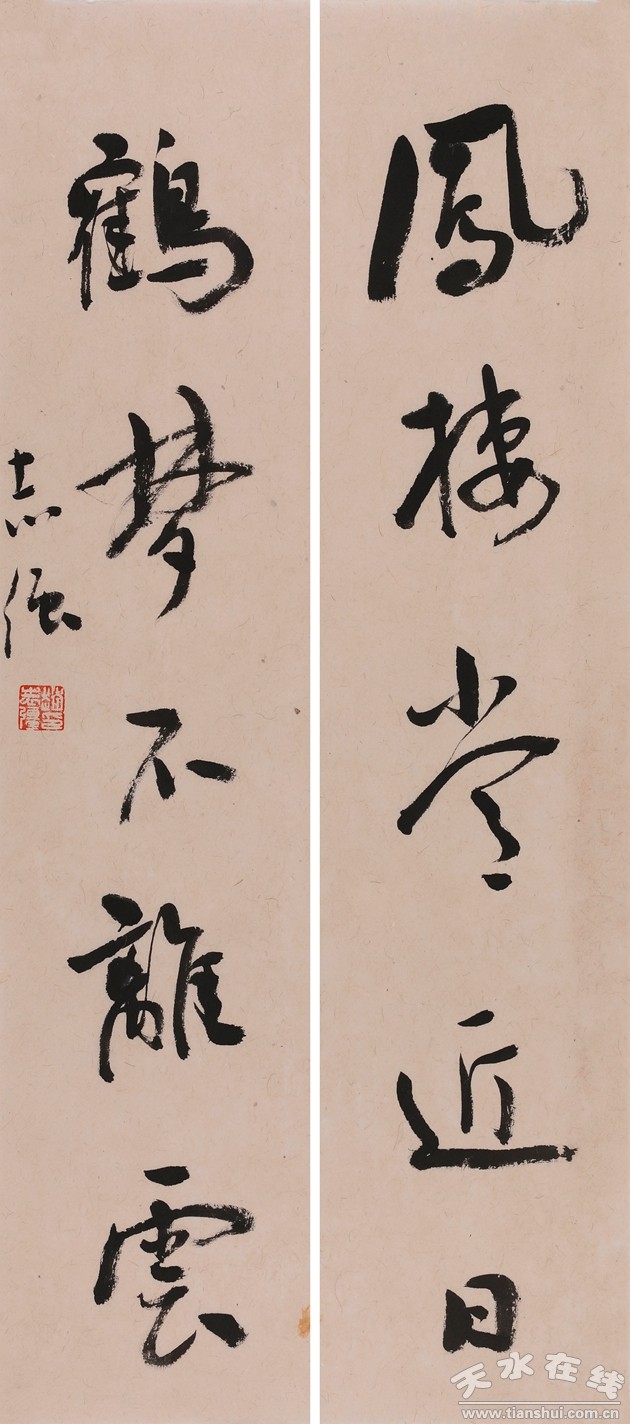 鳳棲常近日
鶴梦不離雲
志强
天水在线
www.tianshui.com.cn